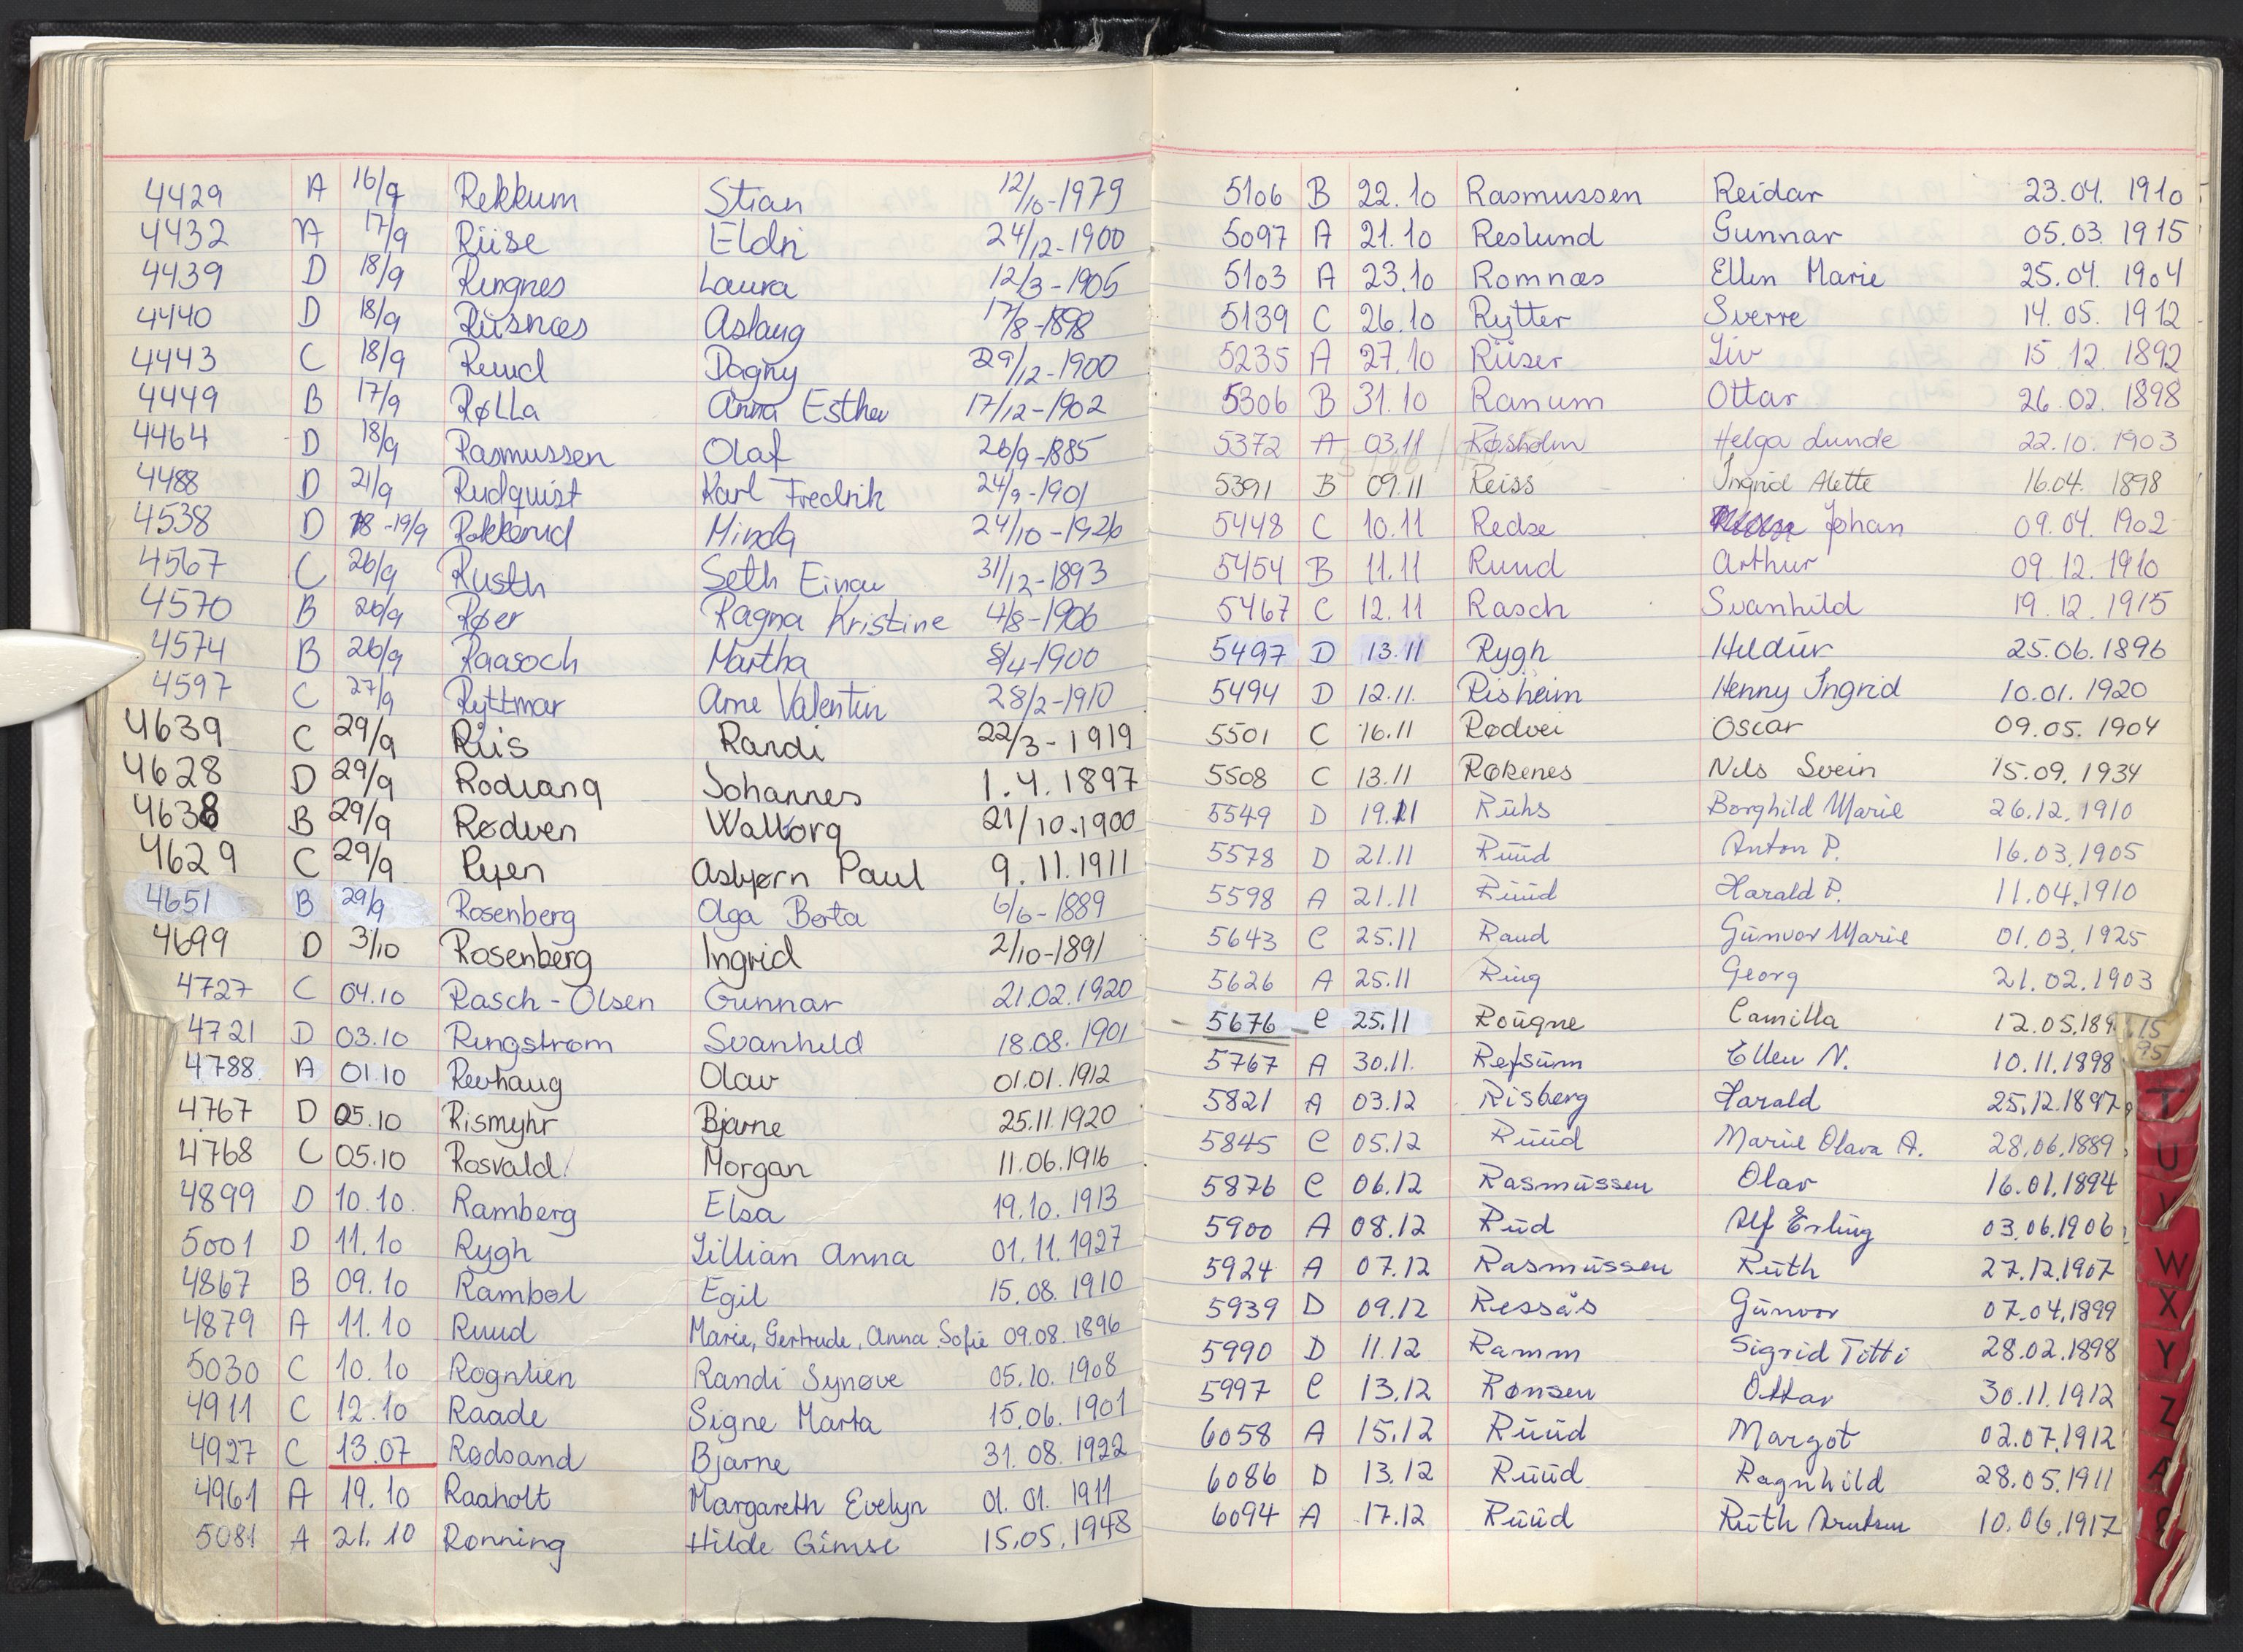 4429 A 16/9 Rekkum Stian 12/10-1979
4432 A 17/9 Riise Eldri 24/12-1900
4439 D 18/9 Ringnes Laura 12/3-1905
4440 D 18/9 Riisnæs Aslaug 17/8-1898
4443 C 18/9 Ruud Dagny 29/12-1900
4449 B 17/9 Rølla Anna Esther 17/12-1902
4464 D 18/9 Rasmussen Olaf 26/9-1885
4488 D 21/9 Rudquist Karl Fredrik 24/9-1901
4538 D 18-19/9 Rakkerud Minda 24/10-1926
4567 C 26/9 Rusth Seth Einar 31/12-1893
4570 B 26/9 Røer Ragna Kristine 4/8-1906
4574 B 26/9 Raasoch Martha 8/4-1900
4597 C 27/9 Ryttmar Arne Valentin 28/2-1910
4639 C 29/9 Riis Randi 22/3-1919
4628 D 29/9 Rodvang Johannes 1.4.1897
4638 B 29/9 Rødven Walborg 21/10.1900
4629 C 29/9 Ryen Asbjørn Paul 9.11.1911
4651 B 29/9 Rosenberg Olga Berta 6/6-1889
4699 D 3/10 Rosenberg Ingrid 2/10-1891
4727 C 04.10 Rasch-Olsen Gunnar 21.02.1920
4721 D 03.10 Ringstrøm Svanhild 18.08.1901
4788 A 01.10 Revhaug Olav 01.01.1912
4767 D 05.10 Rismyhr Bjarne 25.11.1920
4768 C 05.10 Rosvald Morgan 11.06.1916
4899 D 10.10 Ramberg Elsa 19.10.1913
5001 D 11.10 Rygh Lillian Anna 01.11.1927
4867 B 09.10 Rambøl Egil 15.08.1910
4879 A 11.10 Ruud Marie, Gertrude, Anna Sofie 09.08.1896
5030 C 10.10 Rognlien Randi Synøve 05.10.1908
4911 C 12.10 Raade Signe Marta 15.06.1901
4927 C 13.07 Rødsand Bjarne 31.08.1922
4961 A 19.10 Raaholt Margareth Evelyn 01.01.1911
5081 A 21.10 Rønning Hilde Gimse 15.05.1948
5106 B 22.10 Rasmussen Reidar 23.04.1910
5097 A 21.10 Reslund Gunnar 05.03.1915
5103 A 23.10 Romnæs Ellen Marie 25.04.1904
5139 C 26.10 Rytter Sverre 14.05.1912
5235 A 27.10 Riiser Liv 15.12.1892
5306 B 31.10 Ranum Ottar 26.02.1898
5372 A 03.11 Røsholm Helga Lunde 22.10.1903
5391 B 09.11 Reiss Ingrid Alette 16.04.1898
5448 C 10.11 Redse Johan 09.04.1902
5454 B 11.11 Ruud Arthur 09.12.1910
5467 C 12.11 Rasch Svanhild 19.12.1915
5497 D 13.11 Rygh Hildur 25.06.1896
5494 D 12.11. Risheim Henny Ingrid 10.01.1920
5501 C 16.11 Rødvei Oscar 09.05.1904
5508 C 13.11 Røkenes Nils Svein 15.09.1934
5549 D 19.11 Rühs Borghild Marie 26.12.1910
5578 D 21.11 Ruud Anton P. 16.03.1905
5598 A 21.11 Ruud Harald P. 11.04.1910
5643 C 25.11 Raud Gunvor Marie 01.03.1925
5626 A 25.11 Ring Georg 21.02.1903
5676 C 25.11 Rougne Camilla 12.05.189
5767 A 30.11. Refsum Ellen N. 10.11.1898
5821 A 03.12 Risberg Harald 25.12.1897
5845 C 05.12 Ruud Marie Olava A. 28.06.1889
5876 C 06.12 Rasmussen Olav 16.01.1894
5900 A 08.12 Rud Alf Erling 03.06.1906
5924 A 07.12 Rasmussen Ruth 27.12.1907
5939 D 09.12 Ressås Gunvor 07.04.1899
5990 D 11.12 Ramm Sigrid Titti 28.02.1898
5997 C 13.12 Rønsen Ottar 30.11.1912
6058 A 15.12 Ruud Margot 02.07.1912
6086 D 13.12 Ruud Ragnhild 28.05.1911
6094 A 17.12 Ruud Ruth 10.06.1917
T
U
V
W
X
Y
Z